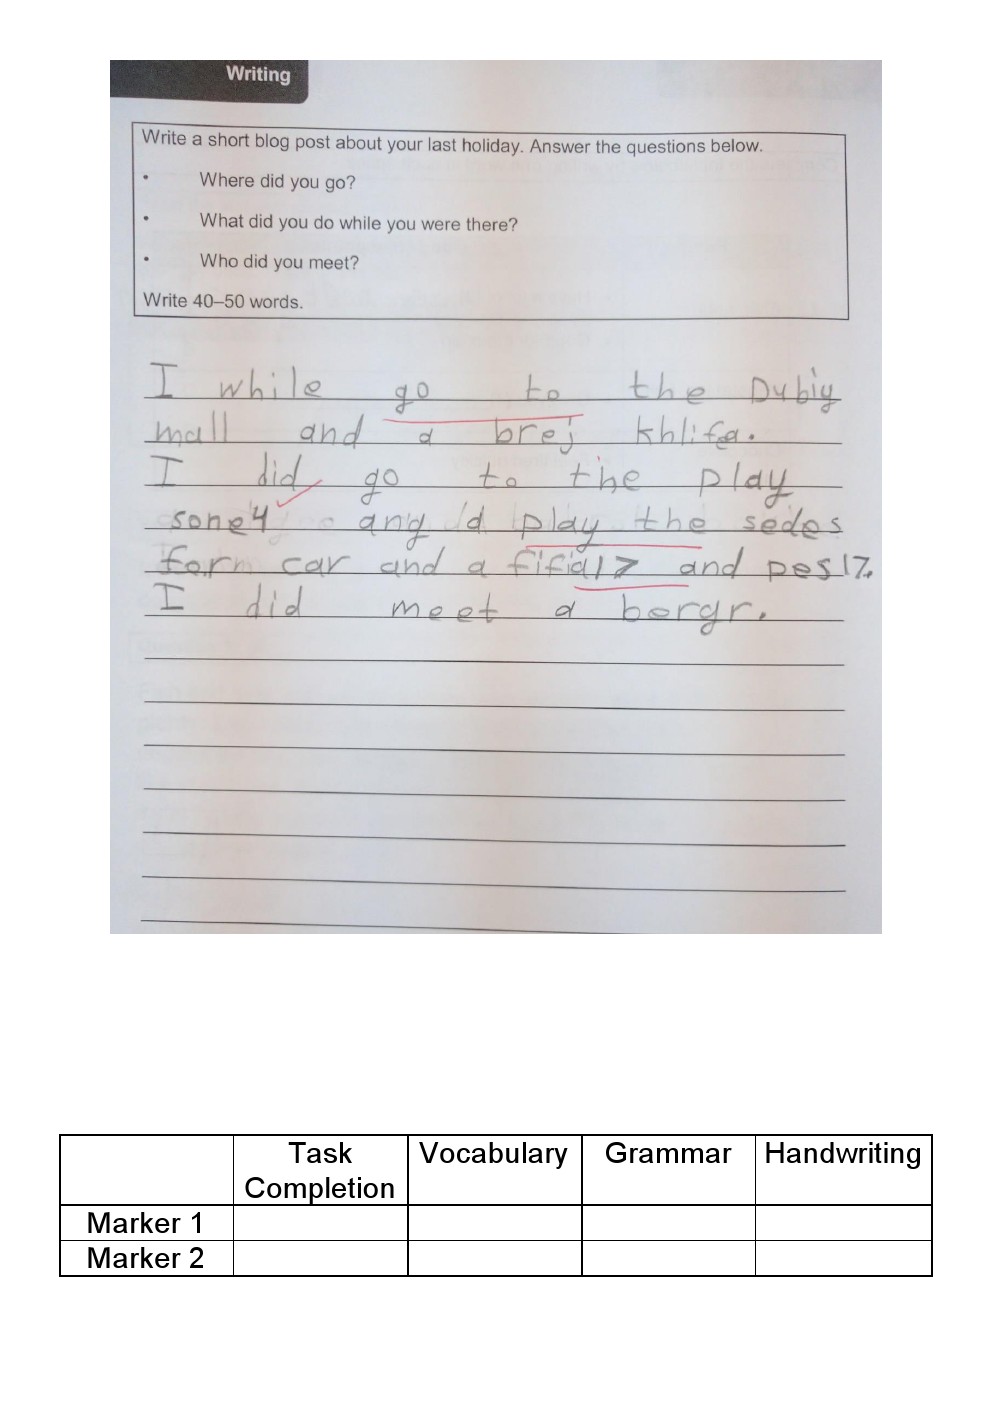 Writing
Write a short blog post about your last holiday. Answer the questions below.
• Where did you go?
• What did you do while you were there?
• Who did you meet?
Write 40–50 words.
I while go to the Dubiy
mall and a brej khlifa.
I did go to the play
sone4 and play the sedes
form car and a fifia17 and pes17.
I did meet a bergr.
Task Completion Vocabulary Grammar Handwriting
Marker 1
Marker 2